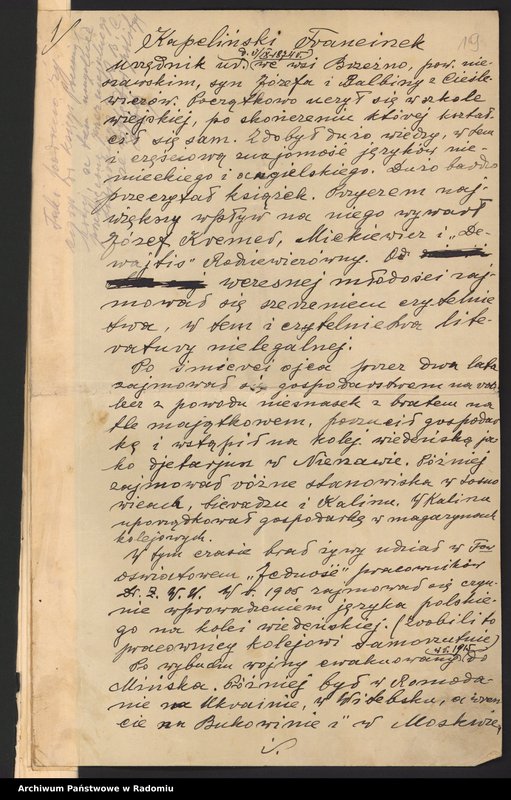 1/
19
Kapeliński Franciszek
d. 4/IX.1874 r.
Urzędnik ur. we wsi Brzeźno, pow. nie-
szawskim, syn Józefa i Balbiny z Cieśle-
wiczów. Początkowo uczył się w szkole
wiejskiej, po skończeniu której kształ-
cił się sam. Zdobył dużo wiedzy, w tem
i częściową znajomość języków nie-
mieckiego i angielskiego. Dużo bardzo
przeczytał książek. Przyczem naj-
większy wpływ na niego wywarł
Józef Kremer, Mickiewicz i „De-
wajtis" Rodziewiczówny. Od
wczesnej młodości zaj-
mował się szerzeniem czytelnic
twa, w tem i czytelnictwa lite-
ratury nielegalnej.
Po śmierci ojca przez dwa lata
zajmował się gospodarstwem na roli,
lecz z powodu niesnasek z bratem na
tle majątkowem, porzucił gospodar
kę i wstąpił na kolej wiedeńską ja
ko djetarjusz w Nieszawie. Później
zajmował różne stanowiska w Sosno
wicach, Sieradzu i Kaliszu. W Kaliszu
uporządkował gospodarkę w magazynach
kolejowych.
W tym czasie brał żywy udział w Tow
Oświatowem „Jedność" pracowników
D. Ż. W. W. W r. 1905 zajmował się czyn-
nie wprowadzeniem języka polskie-
go na kolei wiedeńskiej. (zrobili to
pracownicy kolejowi samorzutnie)
Po wybuchu wojny ewakuowany do
Mińska. Później był w Romoda-
nie na Ukrainie, w Witebsku, a wresz
cie na Bukowinie i w Moskwie,
Archiwum Państwowe w Radomiu